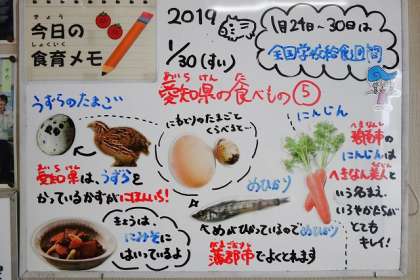 きょう
今日の
しょくいく
食育メモ
2019
1/30(すい)
1月24日~30日は
全国学校給食週間
あいちけん た
愛知県の食べもの⑤
うずらのたまご
にわとりのたまごと
くらべると…
にんじん
へきなん
碧南市の
にんじんは
へきなん美人と
いう名まえ。
いろやかたちが
とても
キレイ!
あいちけん
愛知県は、うずらを
かっているかずがにほんいち!
めひかり
きょうは、
にみそに
はいっているよ
めがひかっているので めひかり
がまごおりし
蒲郡市でよくとれます